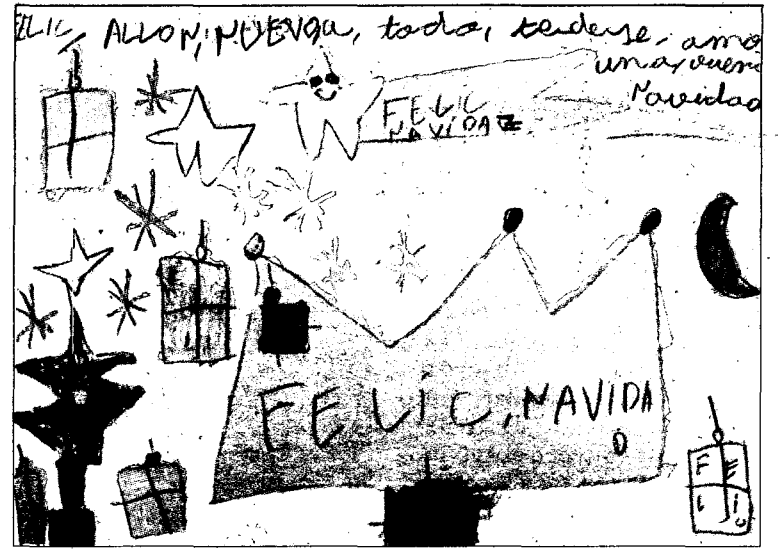 ELIC, ALLON, NUEVOA, todo, tenderse, amo
una, 
Navidad
FELIC
NAVIDAZ
FELIC, NAVIDA
D
F E
L I C